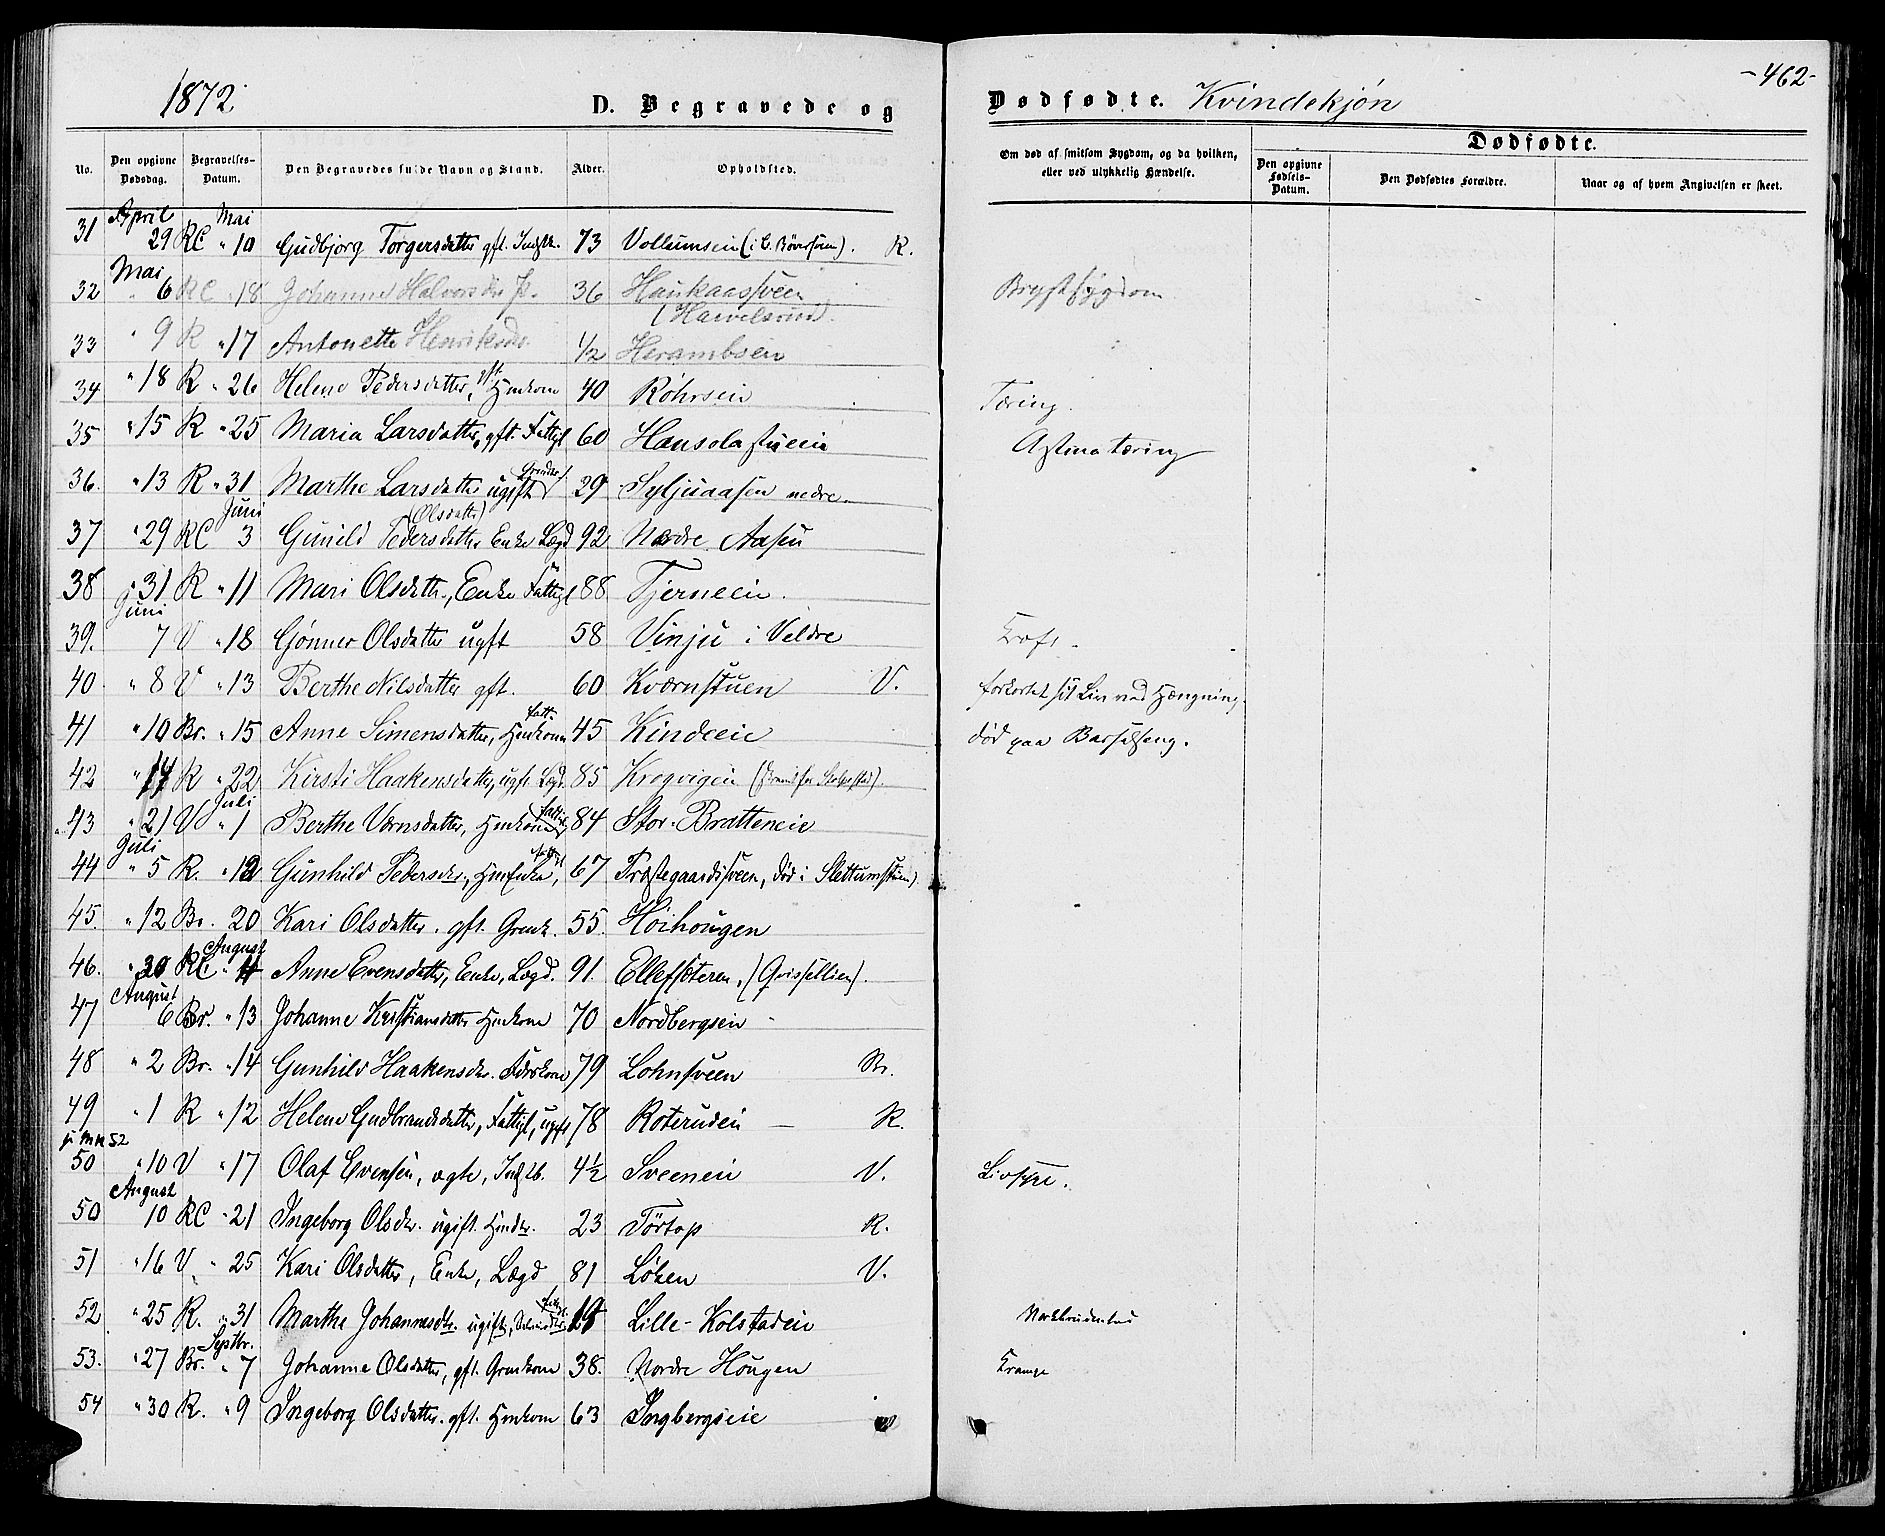 1872 D. Begravede og Dødfødte. Kvindekjøn -462-
No. Den opgivne Dødsdag. Begravelses-Datum. Den Begravedes fulde Navn og Stand. Alder. Opholdsted. Om død af smitsom Sygdom, og da hvilken, eller ved ulykkelig Hændelse. Dødfødte.
Den opgivne Fødsels-Datum. Den Dødfødtes Forældre. Naar og af hvem Angivelsen er skeet.
April Mai
31 29 RC " 10 Gudbjorg Torgersdatter gft. 73 Vollumseie R.
Mai
32 " 6 RC " 18 Johanne Halvorsdtr 36 Haukaassveen Brystsygdom
33 " 9 R " 17 Antonette Henriksdr. 1/2 Herambseie
34 " 18 R " 26 Helene Pedersdatter, gft. Hmkone 40 Røhrseie Tæring.
35 " 15 R " 25 Maria Larsdatter, gft. Fattigl 60 Hansolastueeie Astma tæring
36. " 13 R " 31 Marthe Larsdatter ugift 29 Syljuaasen nedre
Juni (Olsdatter)
37 " 29 RC 3 Gunild Pedersdatter Enke Lægd 92 Nordre Aasen
38 " 31 R " 11 Mari Olsdattr., Enke Fattigl 88 Tjerneeie.
Juni
39. 7 V " 18 Gønner Olsdatter ugft 58 Vinju i Veldre Kræft.
40. " 8 V " 13 Berthe Nilsdatter gft. 60 Kværnstuen V. forkortet sit Liv ved Hængning.
41 " 10 Br. " 15 Anne Simensdatter, fatt. Hmkone 45 Kindeeie død paa Barselseng.
42 " 14 R " 22 Kirsti Haakensdatter, ugift Lægd. 85 Krogvigen
Juli
43 " 21 V " 1 Berthe Vernsdatter, Hmkone fattig 84 Stor-Bratteneie
Juli
44 " 5 R. " 12 Gunhild Pedersdr., Hmenke, 67 Præstegaardssveen, død i Slettumstuen)
45. " 12 Br. 20 Kari Olsdatter. gft. Grmk. 55. Høihougen
August
46. " 30 RC. " 4 Anne Evensdatter, Enke, Lægd. 91. Ellefsæteren, (Qvisellien).
August
47 6 Br. " 13 Johanne Kristiansdatter Hmkone 70 Nordbergseie
48 " 2 Br. " 14 Gunhild Haakensdr. Fdrkone 79 Lohnsveen Br.
49 " 1 R " 12 Helene Gudbrandsdatter, Fattigl, ugift 78 Roterudeie R.
50 " 10 V " 17 Olaf Evensen, ægte, 4½ Sveeneie V.
August
50 10 RC " 21 Ingeborg Olsdr. ugift. 23 Tørtop R.
51 " 16 V " 25 Kari Olsdatter, Enke, Lægd 81 Løken V.
52 " 25 R. " 31 Marthe Johannesdtr. ugift, 19 Lille-Kolstadeie
Septbr.
53. " 27 Br. " 7 Johanne Olsdatter, gft. Grmkone 38. Nordre Hougen Krampe
54 " 30 R. " 9 Ingeborg Olsdatter. gft. Hmkone 63 Ingbergseie